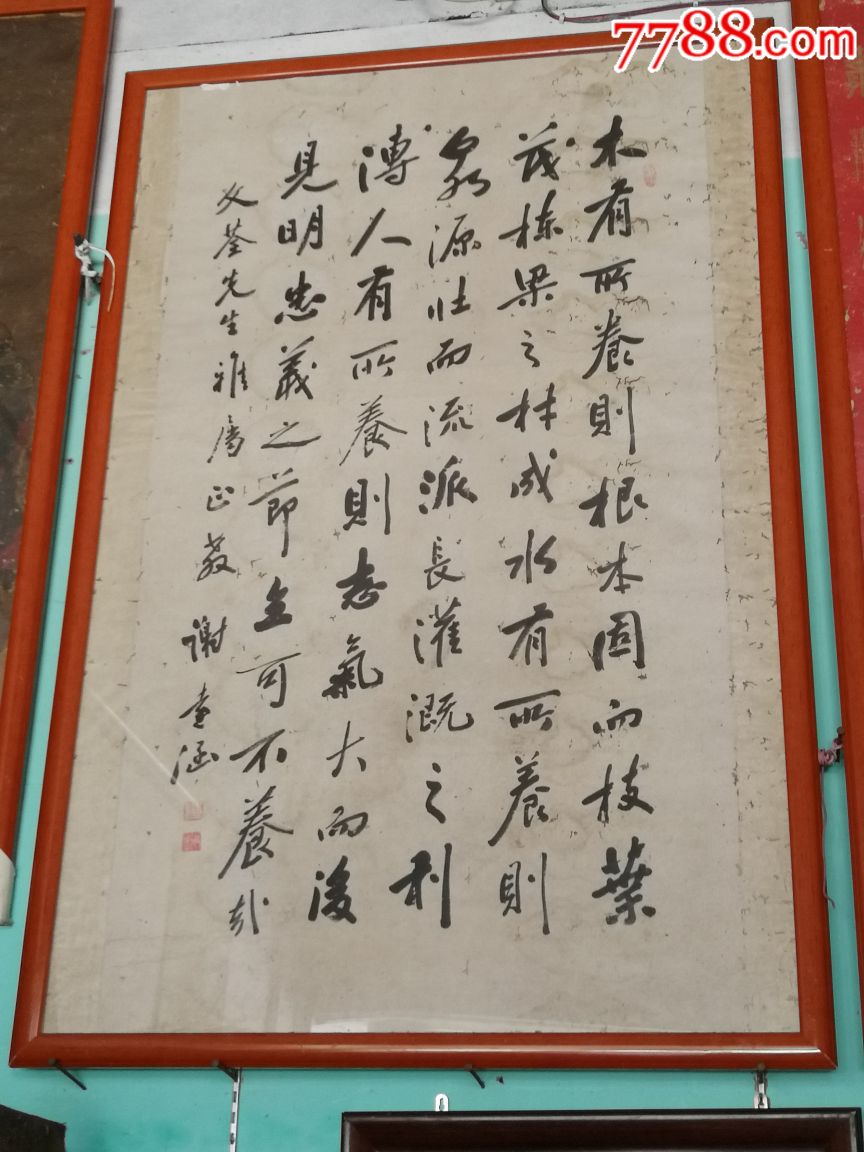 7788.com
木有所養則根本固而枝葉
茂栋梁之材成水有所養則
泉源壮而流派長灌溉之利
溥人有所養則志氣大而後
見明忠義之節全可不養哉
文荃先生雅属正教 谢壶涵